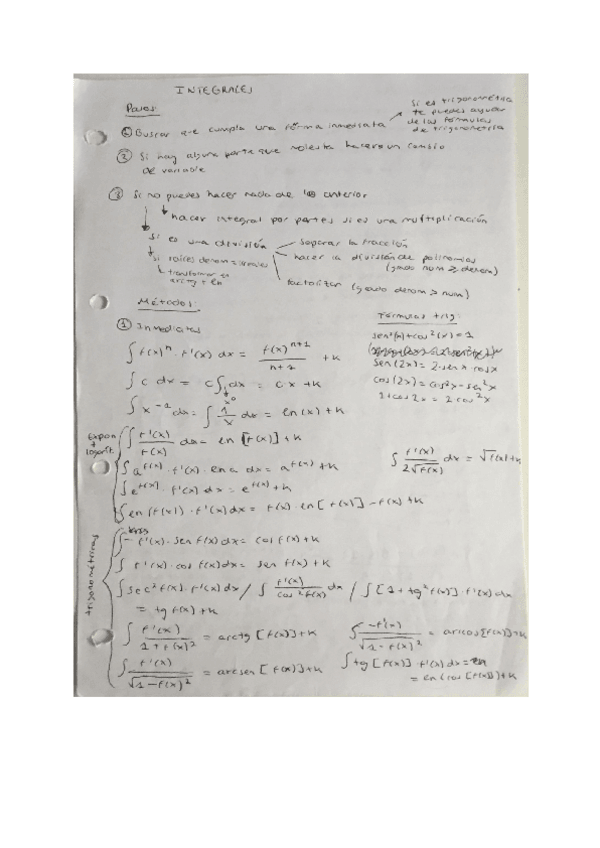 INTEGRALES
Pasos:
① Buscar que cumpla una fórma inmediata
Si es trigonométrica
te puedes ayudar
de las fórmulas
de trigonometría
② Si hay alguna parte que molesta hacer un cambio
de variable
③ Si no puedes hacer nada de lo anterior
hacer integral por partes si es una multiplicación
Si es una división
separar la fracción
hacer la división de polinomios
(grado num ≥ denom)
factorizar (grado denom > num)
Si raices denom = irreales
transformar en
arctg + ln
Métodos:
① Inmediatas
∫ f(x)ⁿ · f'(x) dx = f(x)ⁿ⁺¹ / n+1 + K
∫ c dx = c ∫ 1 dx = c·x + K
∫ x⁻¹ dx = ∫ 1/x dx = ln(x) + K
Fórmulas trig:
sen²(x)+cos²(x)=1
sen(2x) = 2·sen x cos x
cos(2x) = cos²x - sen²x
1+cos2x = 2cos²x
Expon
+
logarít
∫ f'(x)/f(x) dx = ln [f(x)] + K
∫ f'(x)/2√f(x) dx = √f(x) + K
∫ a^f(x) · f'(x) · ln a dx = a^f(x) + K
∫ e^f(x) · f'(x) dx = e^f(x) + K
∫ ln(f(x)) · f'(x) dx = f(x) · ln[f(x)] - f(x) + K
trigonométricas
∫ - f'(x) · sen f(x) dx = cos f(x) + K
∫ f'(x) · cos f(x) dx = sen f(x) + K
∫ sec² f(x) · f'(x) dx / ∫ f'(x)/cos² f(x) dx / ∫ [1 + tg² f(x)] · f'(x) dx
= tg f(x) + K
∫ f'(x)/1+f(x)² = arctg [f(x)] + K
∫ -f'(x)/√1-f(x)² = arcos [f(x)] + K
∫ f'(x)/√1-f(x)² = arcsen [f(x)] + K
∫ tg [f(x)] · f'(x) dx = ln
= ln (cos [f(x)]) + K